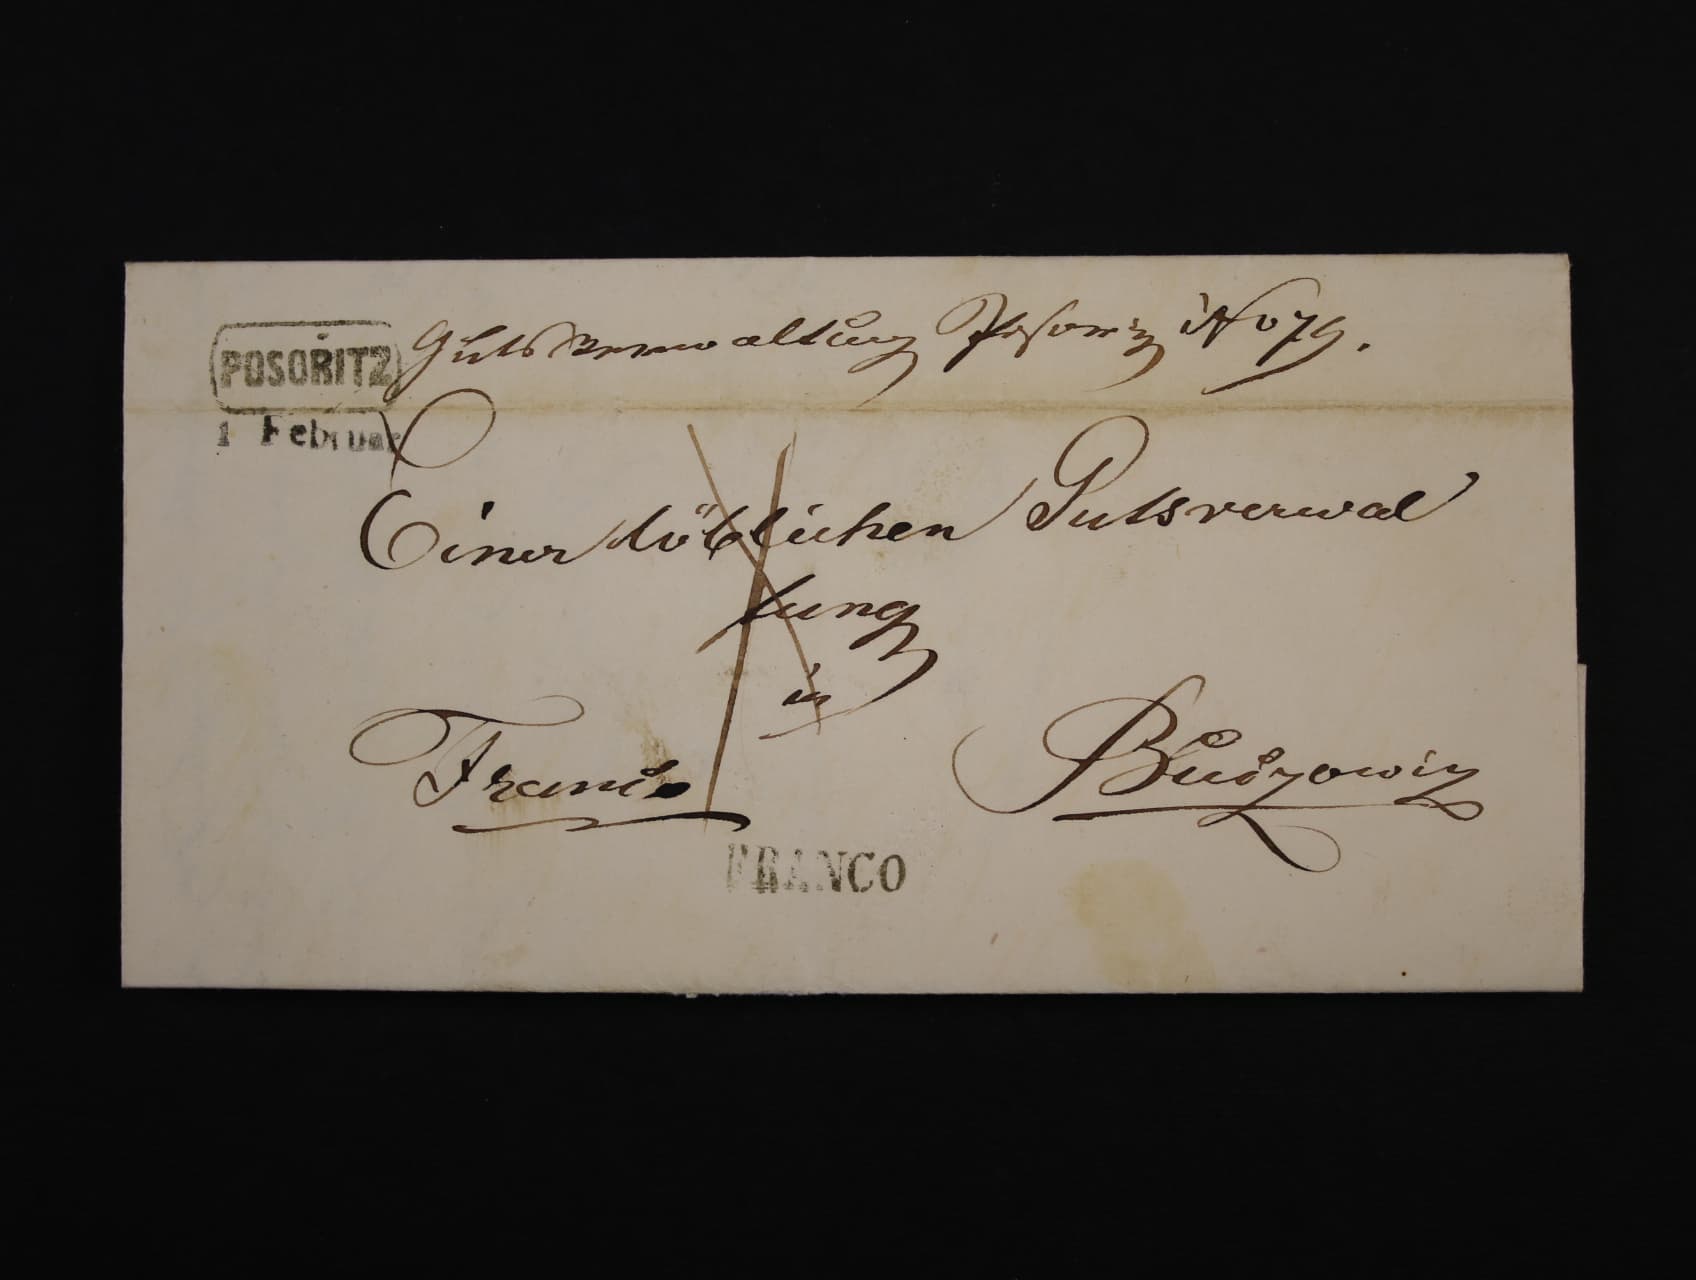 POSOŘITZ
1 Februar
Gutsverwaltung Posoriz No 79.
Einer löblichen Gutsverwal
tung
in
Franco
Butzowiz
FRANCO